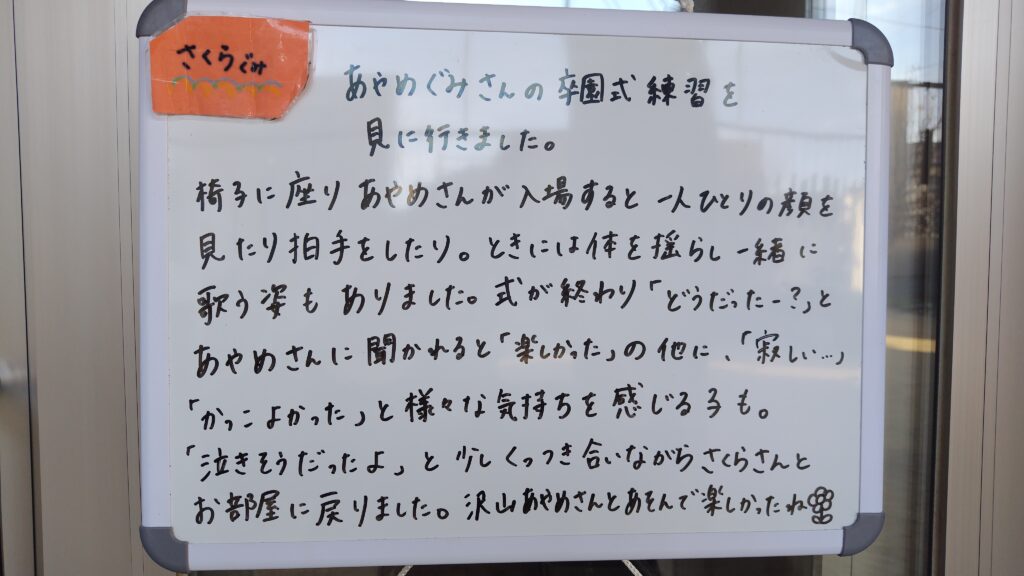 さくらぐみ
あやめぐみさんの卒園式練習を
見に行きました。
椅子に座りあやめさんが入場すると一人ひとりの顔を
見たり拍手をしたり。ときには体を揺らし一緒に
歌う姿もありました。式が終わり「どうだったー?」と
あやめさんに聞かれると「楽しかった」の他に、「寂しい…」
「かっこよかった」と様々な気持ちを感じる子も。
「泣きそうだったよ」と少しくっつき合いながらさくらさんと
お部屋に戻りました。沢山あやめさんとあそんで楽しかったね